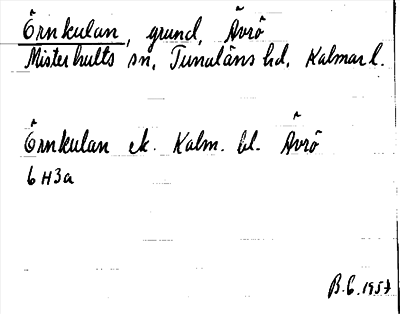 Örnkulan, grund, Ävrö
Misterhults sn, Tunaläns hd, Kalmar l.
Örnkulan ek. Kalm. bl. Ävrö
6 H3a
B.E. 1957